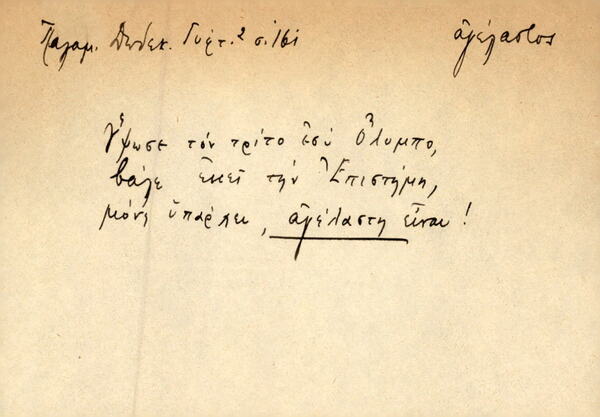 Παλαμ. Δωδεκ. Γύφτ.² σ. 161 ἀγέλαστος
Ὕψωσε τὸν τρίτο ἐσὺ Ὄλυμπο,
βάλε ἐκεῖ τὴν Ἐπιστήμη,
μόνη ὑπάρχει, ἀγέλαστη εἶναι!